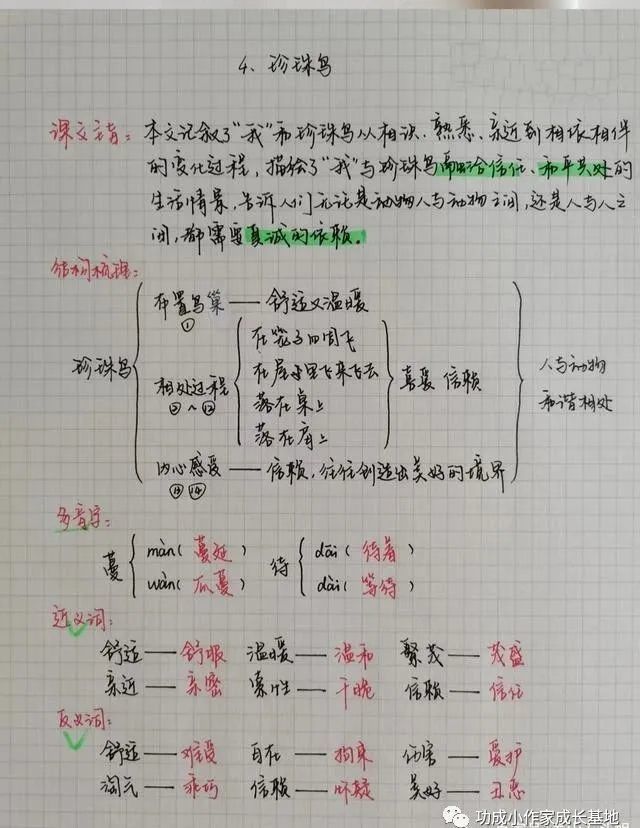 4、珍珠鸟
课文主旨：本文记叙了“我”和珍珠鸟从相识、熟悉、亲近到相依相伴
的变化过程，描绘了“我”与珍珠鸟融洽信任、和平共处的
生活情景，告诉人们无论是动物人与动物之间，还是人与人之
间，都需要真诚的依赖。
结构梳理：
布置鸟巢——舒适又温暖
①
在笼子四周飞
珍珠鸟 相处过程 在屋子里飞来飞去 喜爱 信赖 人与动物
②～⑫ 落在桌上 和谐相处
落在肩上
内心感受——信赖，往往创造出美好的境界
⑬⑭
多音字：
蔓 màn（蔓延） 待 dāi（待着）
wàn（瓜蔓） dài（等待）
近义词：
舒适——舒服 温暖——温和 繁茂——茂盛
亲近——亲密 索性——干脆 信赖——信任
反义词：
舒适——难受 自在——拘束 伤害——爱护
淘气——乖巧 信赖——怀疑 美好——丑恶
功成小作家成长基地